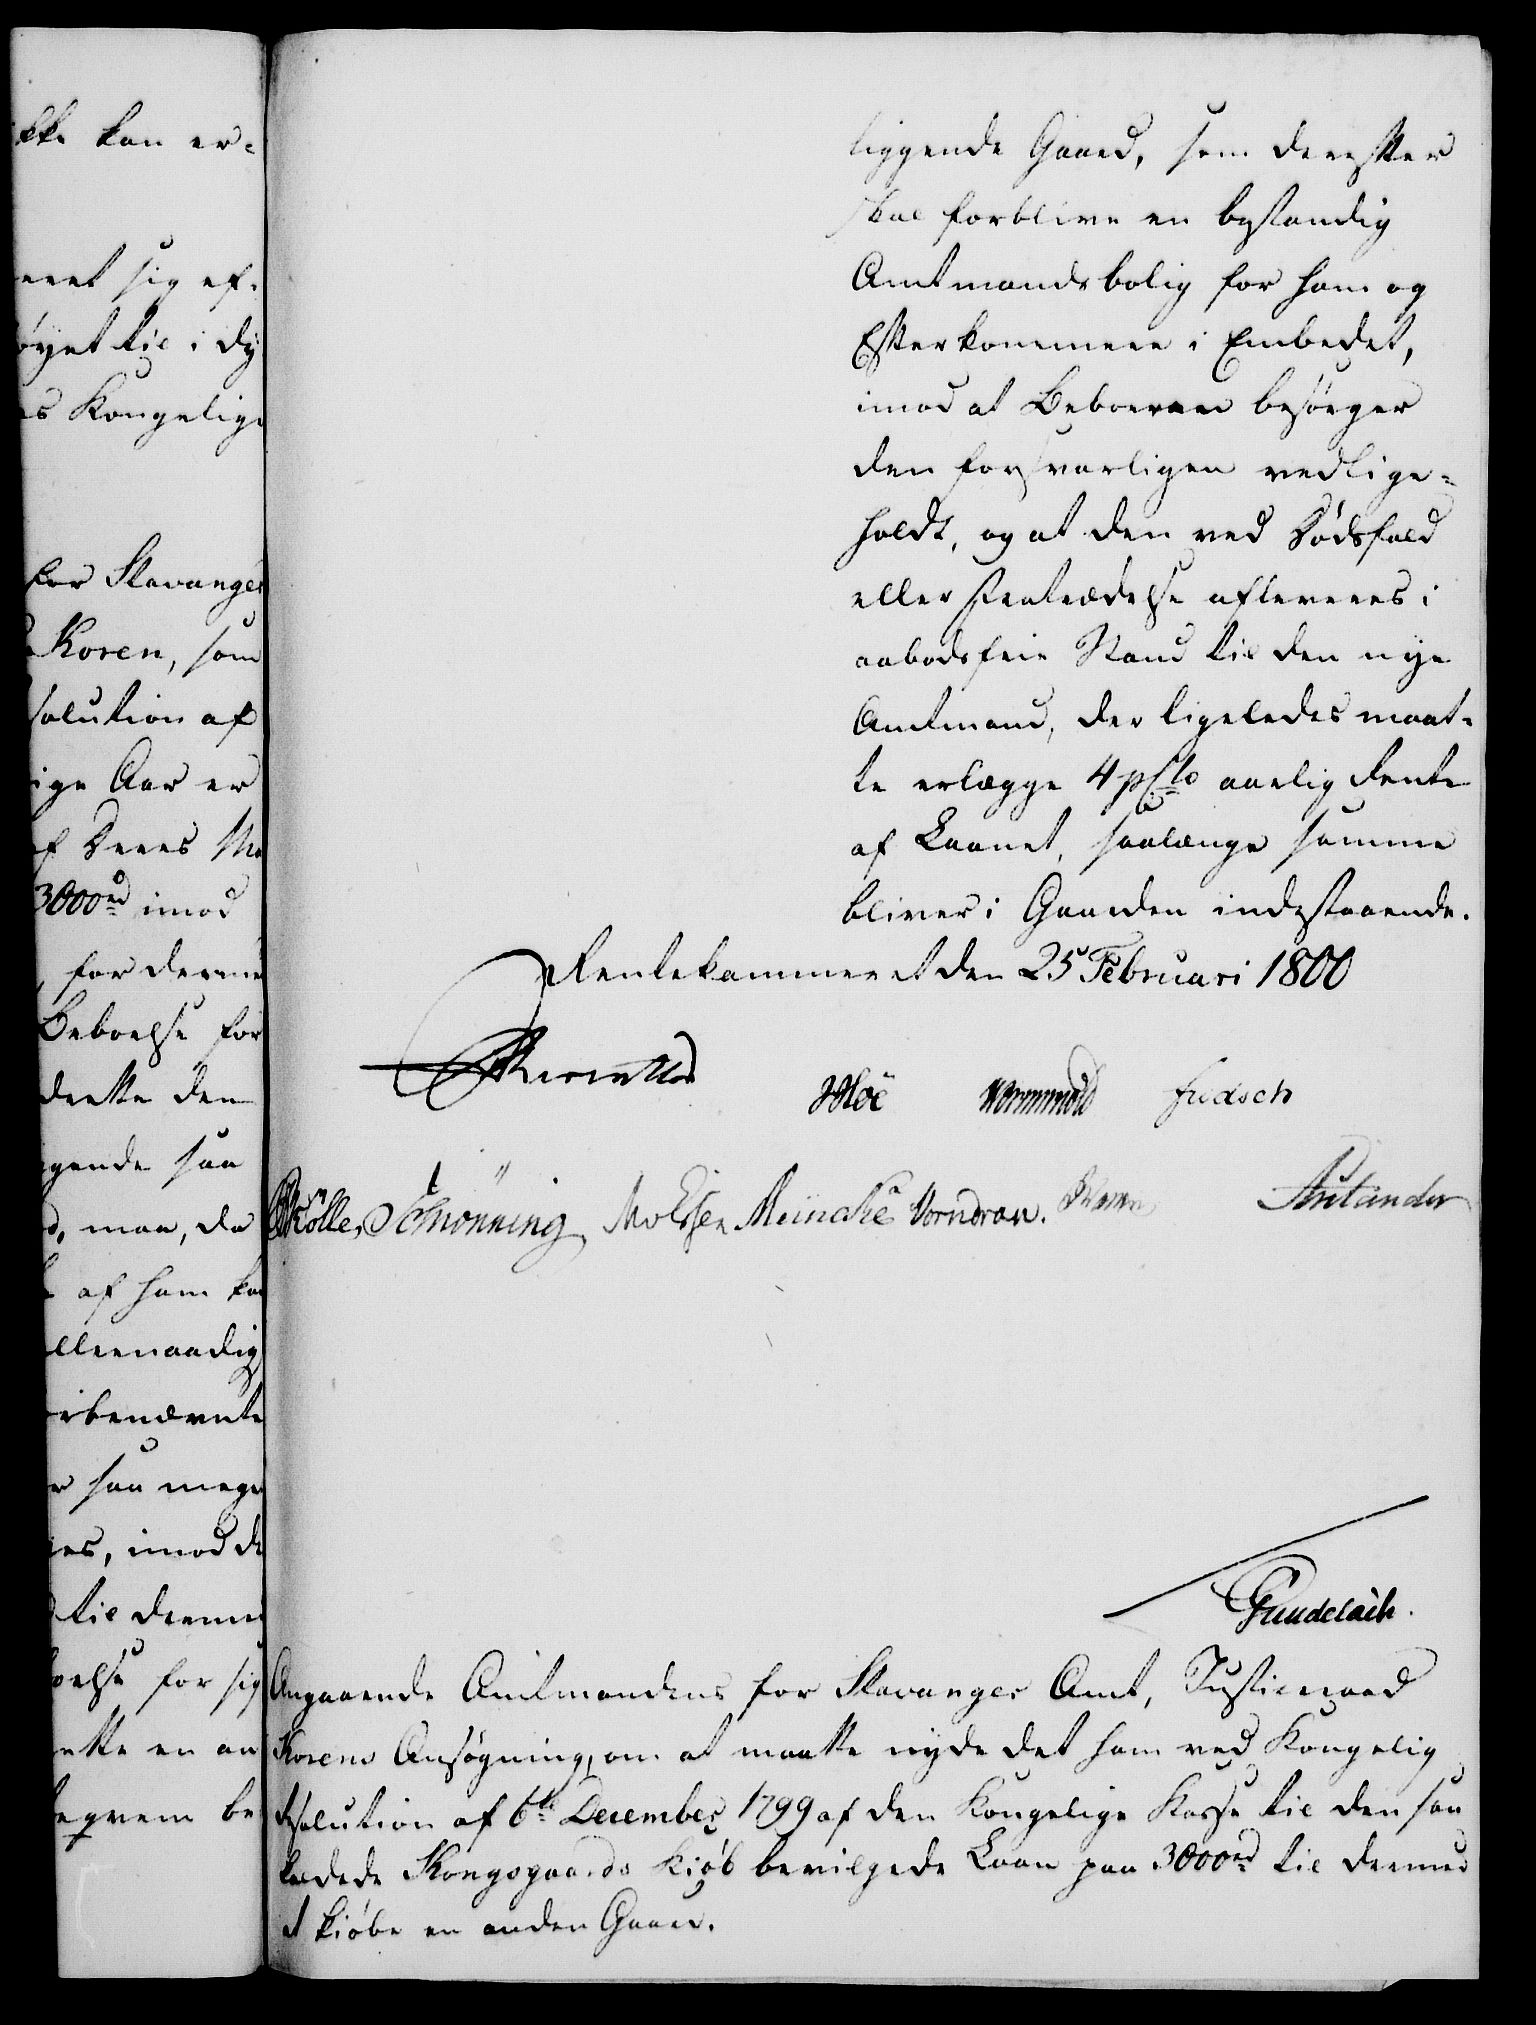 kke kan er-
eret sig ef-
øyet til i Dy
es Kongelige
for Stavanger
Koren, som
solution af
ige Aar er
af Deres Ma
3000rd imod
, for derme
Beboelse for
dertte den
gende saa
d, maa, da
af ham ka
llernaadig
rbenævnte
r saa mege
es, imod de
til derme
oelse for sig
ette en an
beqvem be
liggende Gaard, som derefter
skal forblive en bestandig
Amtmandsbolig for ham og
Efterkommere i Embedet,
imod at Beboeren besørger
den forsvarligen vedlige-
holdt, og at den ved Dødsfald
eller fratrædelse afleveres i
aabodsfrie Stand til den nye
Amtmand, der ligeledes maat-
te erlægge 4 pCto aarlig Rente
af Laanet, saalænge samme
bliver i Gaarden indestaaende.
Rentekammeret den 25 Februari 1800
Reventlow
Wløe Wormskiold Fridsch
Kölle, Schrönning, Moessen Meincke Vorndran. Antander
Gundelach.
Angaaende Amtmandens for Stavanger Amt, Justicraad
Korens Ansøgning, om at maatte nyde det ham ved Kongelig
Resolution af 6te December 1799 af den Kongelige Kasse til den saa
kaldede Kongsgaards Kiøb bevilgede Laan paa 3000rd til dermed
at kiøbe en anden Gaard.